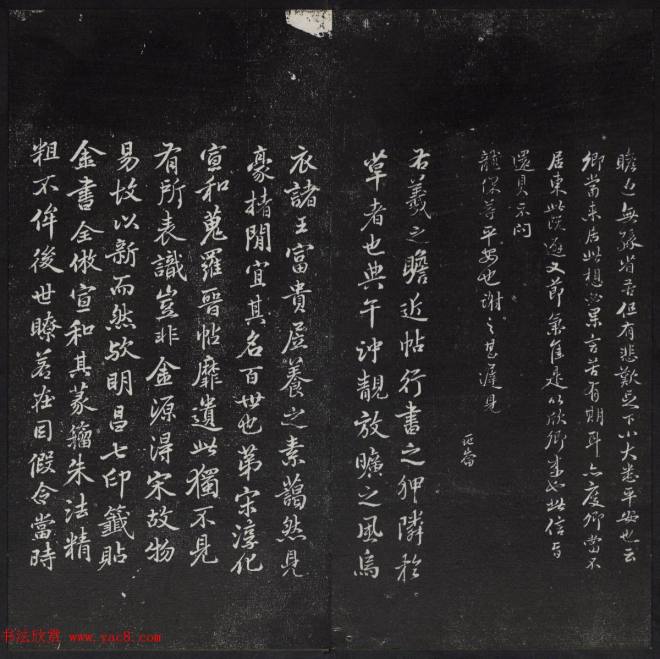 瞻近無緣省苦但有悲歎足下小大悉平安也云
卿當來居此想必果言苦有期耳亦度卿當不
居東此既避又節氣佳是以欣卿來也此信旨
還具示問
龍保等平安也謝之甚遲見
右羲之瞻近帖行書之狎隣於
草者也典午沖靚放曠之風烏
衣諸王富貴居養之素藹然見
豪楮間宜其名百世也第宋淳化
宣和蒐羅晉帖靡遺此獨不見
有所表識豈非金源得宋故物
易故以新而然歟明昌七印籤貼
金書全倣宣和其篆籀朱法精
粗不侔後世瞭若在目假令當時
书法欣赏 www.yac8.com